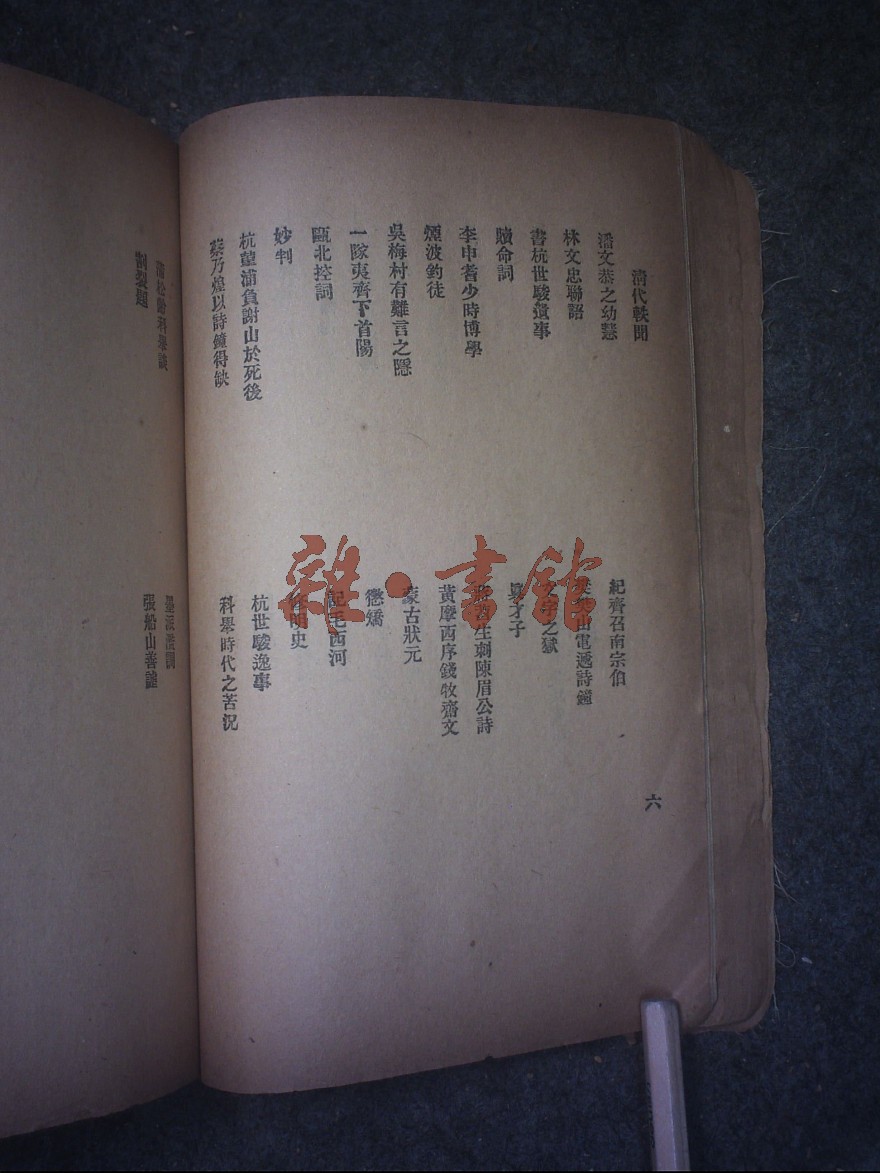 清代軼聞
潘文恭之幼慧
紀齊召南宗伯
林文忠聯語
樊樊山電遞詩鐘
書杭世駿遺事
文字之獄
贖命詞
眞才子
李申耆少時博學
生刺陳眉公詩
煙波釣徒
黃摩西序錢牧齋文
吳梅村有難言之隱
蒙古狀元
一隊夷齊下首陽
懲矯
甌北控詞
記毛西河
妙判
修明史
杭堇浦負謝山於死後
杭世駿逸事
蔡乃煌以詩鐘得缺
科舉時代之苦況
六
蒲松齡科舉談
割裂題
張船山善謔
雜·書館